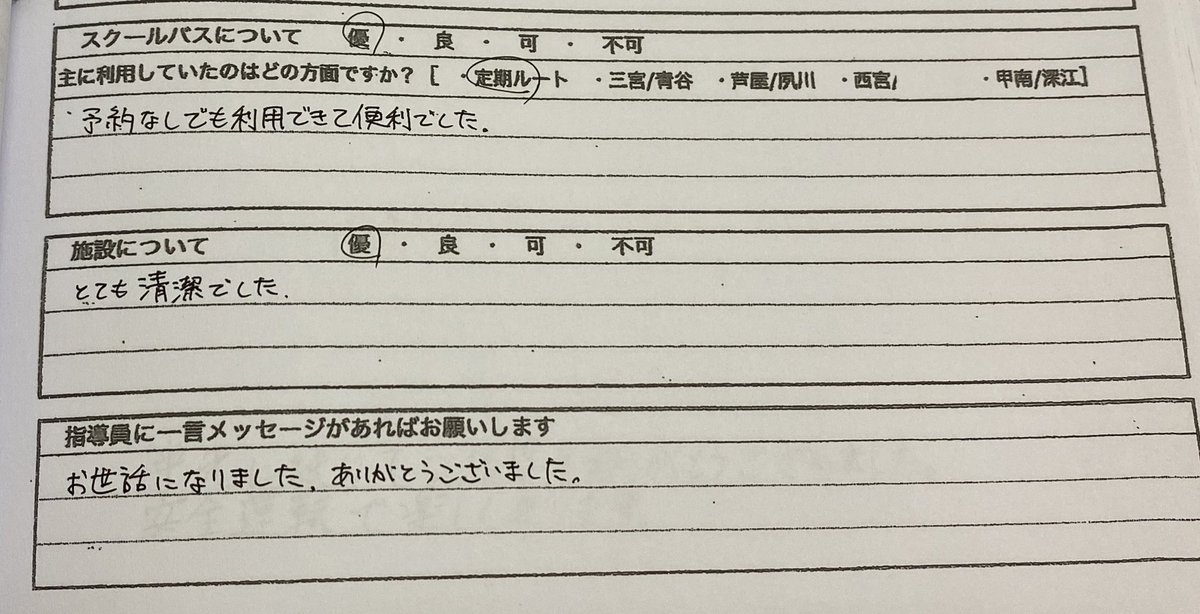 スクールバスについて 優 ・ 良 ・ 可 ・ 不可
主に利用していたのはどの方面ですか？[ ・定期ルート ・三宮/青谷 ・芦屋/夙川 ・西宮/ ・甲南/深江]
予約なしでも利用できて便利でした。
施設について 優 ・ 良 ・ 可 ・ 不可
とても清潔でした.
指導員に一言メッセージがあればお願いします
お世話になりました. ありがとうございました。